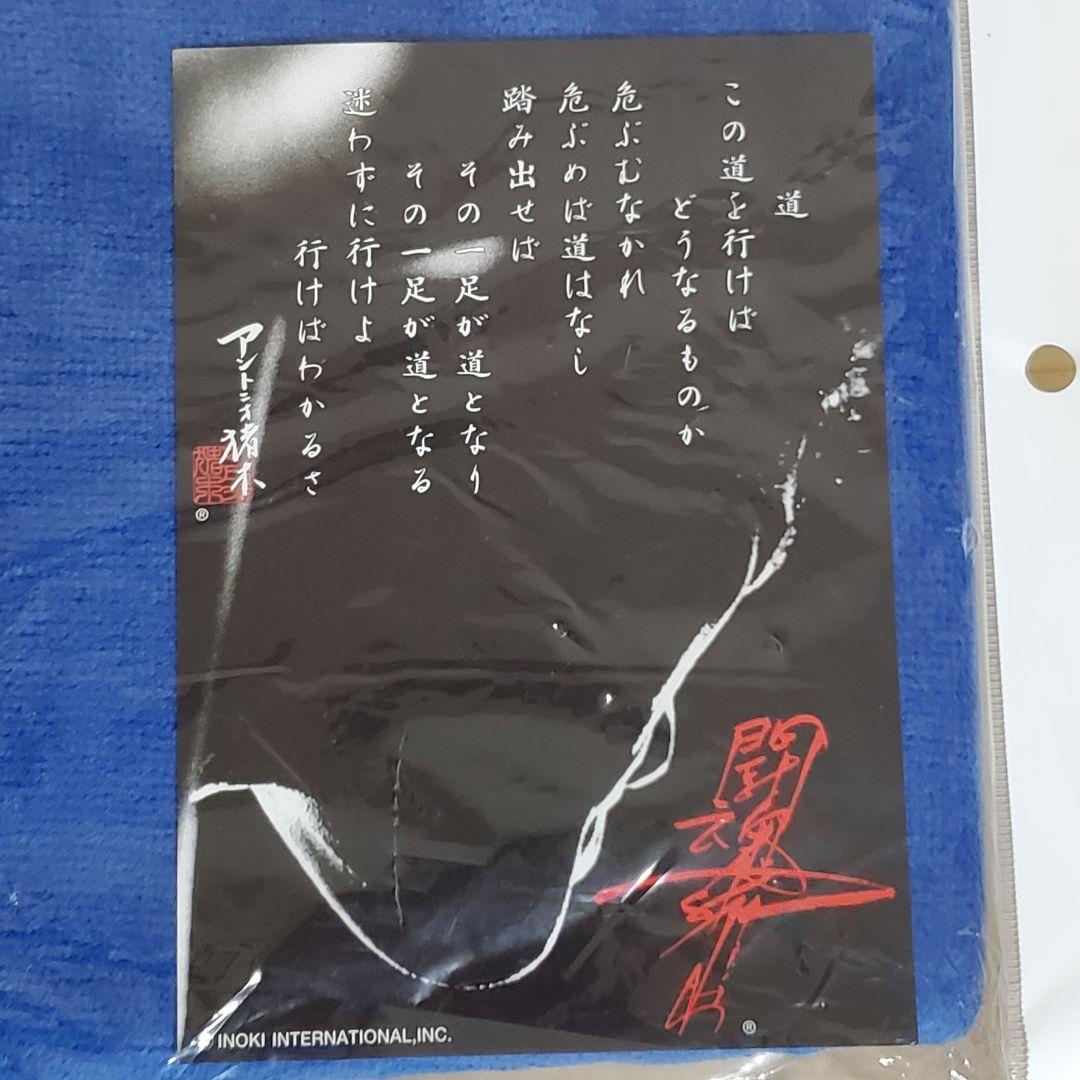 道
この道を行けば
どうなるものか
危ぶむなかれ
危ぶめば道はなし
踏み出せば
その一足が道となり
その一足が道となる
迷わずに行けよ
行けばわかるさ
アントニオ猪木
®
闘魂
®
INOKI INTERNATIONAL,INC.